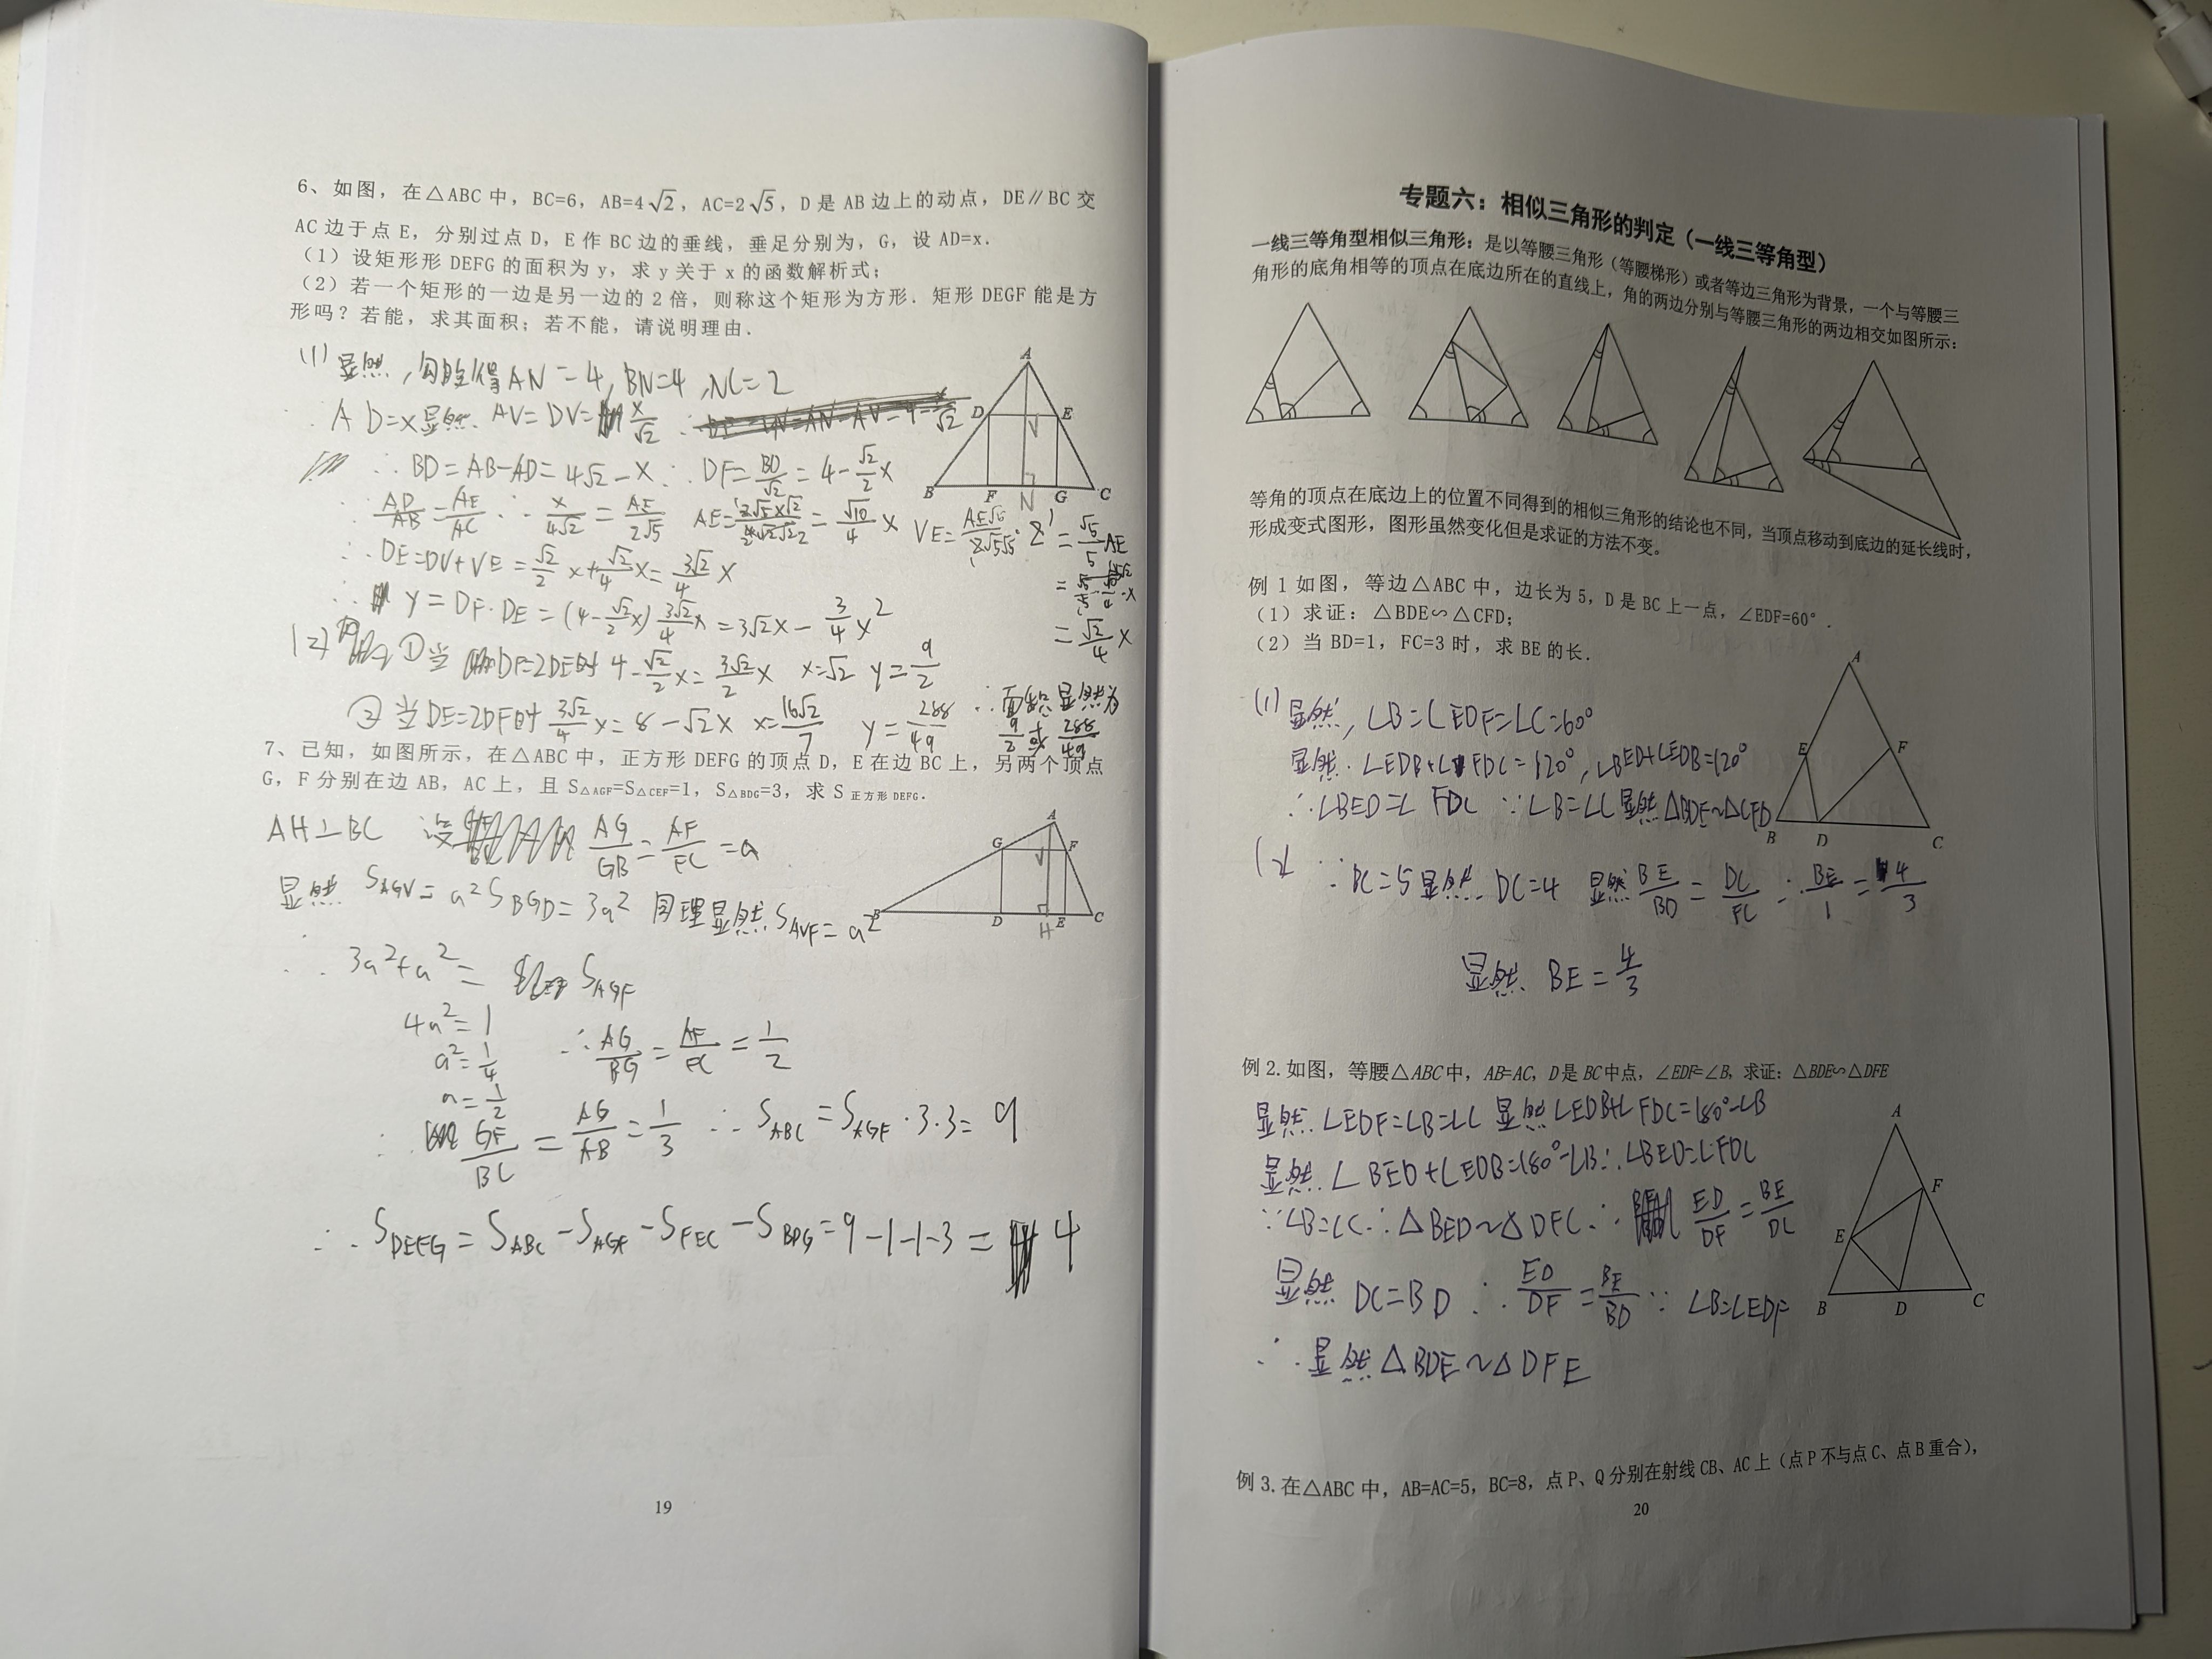 6、如图，在△ABC 中，BC=6，AB=4√2，AC=2√5，D 是 AB 边上的动点，DE∥BC 交
AC 边于点 E，分别过点 D，E 作 BC 边的垂线，垂足分别为，G，设 AD=x.
（1）设矩形形 DEFG 的面积为 y，求 y 关于 x 的函数解析式；
（2）若一个矩形的一边是另一边的 2 倍，则称这个矩形为方形．矩形 DEGF 能是方
形吗？若能，求其面积；若不能，请说明理由．
(1) 显然，勾股得AN=4,BN=4,NC=2
∴AD=x显然 AV=DV=x/√2
∴BD=AB-AD=4√2-x ∴DF=BD/√2=4-√2/2 x
∵AD/AB=AE/AC ∴x/4√2=AE/2√5 AE=√10/4 x
=√5/5 AE
∴DE=DV+VE=√2/2 x+√2/4 x=3√2/4 x
∴y=DF·DE=(4-√2/2 x)3√2/4 x=3√2x-3/4 x²
=√2/4 x
(2) ①当DF=2DE时 4-√2/2 x=3√2/2 x x=√2 y=9/2
②当DE=2DF时 3√2/4 x=8-√2x x=16√2/7 y=288/49
∴面积显然为
9/2或288/49
A
D
E
V
B
F
N
G
C
7、已知，如图所示，在△ABC 中，正方形 DEFG 的顶点 D，E 在边 BC 上，另两个顶点
G，F 分别在边 AB，AC 上，且 S△AGF=S△CEF=1，S△BDG=3，求 S 正方形 DEFG．
AH⊥BC 设 AG/GB=AF/FC=a
显然 S_AGV=a²S_BGD=3a² 同理显然 S_AVF=a²
∴3a²+a²=S_AGF
4a²=1
a²=1/4 ∴AG/BG=AF/FC=1/2
a=1/2
∴GF/BC=AG/AB=1/3 ∴S_ABC=S_AGF·3·3=9
∴S_DEFG=S_ABC-S_AGF-S_FEC-S_BDG=9-1-1-3=4
A
G
V
F
B
D
H
E
C
19
专题六：相似三角形的判定（一线三等角型）
一线三等角型相似三角形：是以等腰三角形（等腰梯形）或者等边三角形为背景，一个与等腰三
角形的底角相等的顶点在底边所在的直线上，角的两边分别与等腰三角形的两边相交如图所示：
等角的顶点在底边上的位置不同得到的相似三角形的结论也不同，当顶点移动到底边的延长线时，
形成变式图形，图形虽然变化但是求证的方法不变。
例 1 如图，等边△ABC 中，边长为 5，D 是 BC 上一点，∠EDF=60°．
（1）求证：△BDE∽△CFD；
（2）当 BD=1，FC=3 时，求 BE 的长．
(1) 显然，∠B=∠EDF=∠C=60°
显然 ∠EDB+∠FDC=120°,∠BED+∠EDB=120°
∴∠BED=∠FDC ∵∠B=∠C 显然△BDE~△CFD
(2) ∵BC=5显然 DC=4 显然BE/BD=DC/FC ∴BE/1=4/3
显然 BE=4/3
A
E
F
B
D
C
例 2.如图，等腰△ABC中，AB=AC，D是BC中点，∠EDF=∠B，求证：△BDE∽△DFE
显然 ∠EDF=∠B=∠C 显然∠EDB+∠FDC=180°-∠B
显然 ∠BED+∠EDB=180°-∠B ∴∠BED=∠FDC
∵∠B=∠C ∴△BED~△DFC ∴ED/DF=BE/DC
显然 DC=BD ∴ED/DF=BE/BD ∵∠B=∠EDF
∴显然△BDE~△DFE
A
F
E
B
D
C
例 3.在△ABC 中，AB=AC=5，BC=8，点 P、Q 分别在射线 CB、AC 上（点 P 不与点 C、点 B 重合），
20